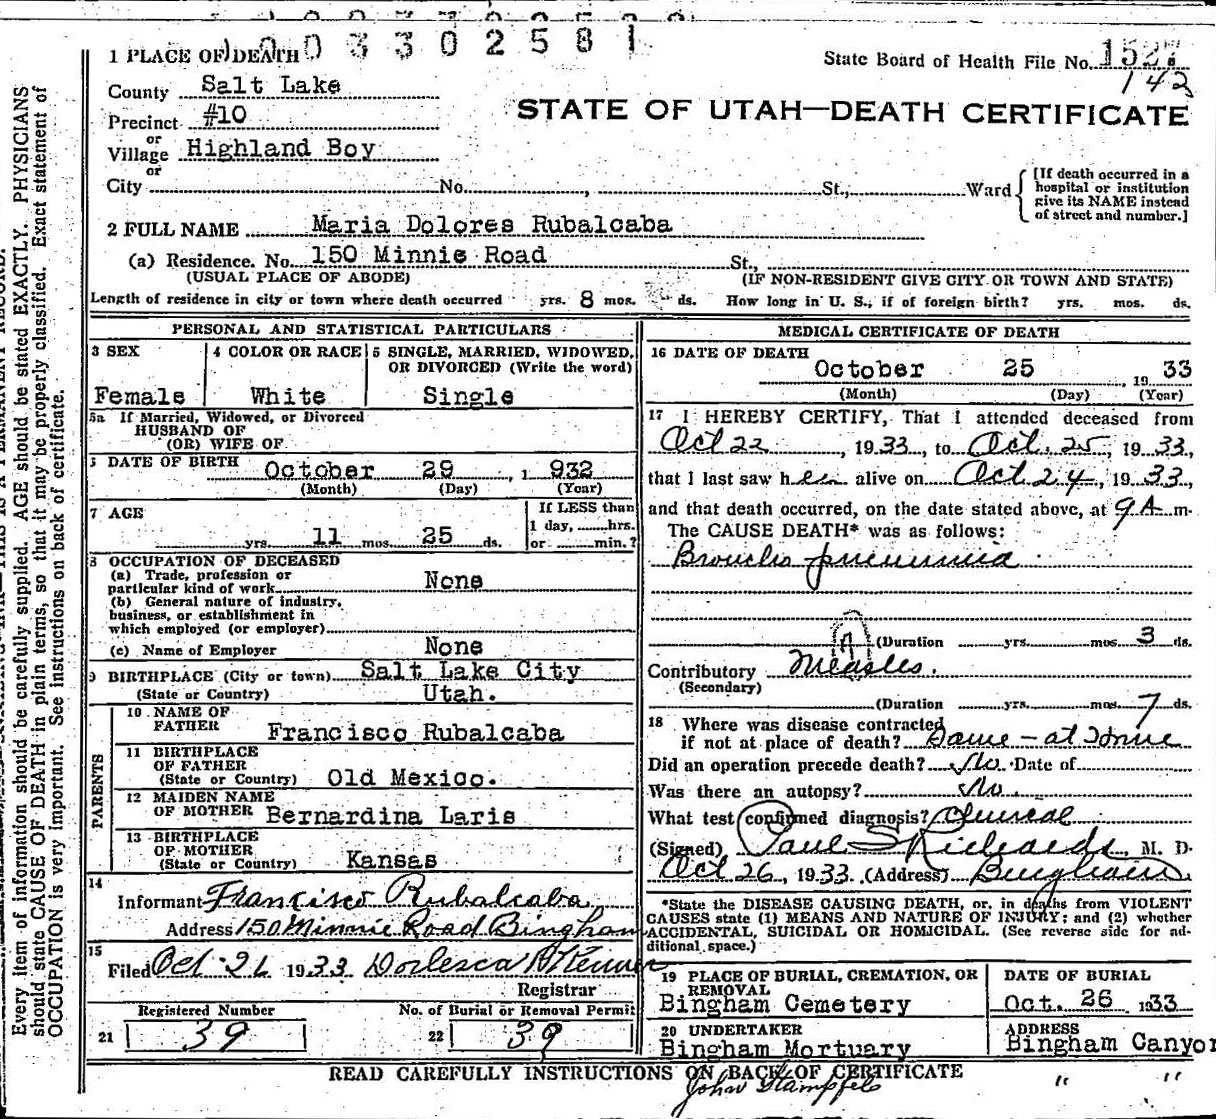 1003302581
1 PLACE OF DEATH
State Board of Health File No. 1527
142
County Salt Lake
Precinct #10
STATE OF UTAH—DEATH CERTIFICATE
or
Village Highland Boy
or
City No. , St., Ward
[If death occurred in a
hospital or institution
give its NAME instead
of street and number.]
2 FULL NAME Maria Dolores Rubalcaba
(a) Residence. No. 150 Minnie Road St.,
(USUAL PLACE OF ABODE) (IF NON-RESIDENT GIVE CITY OR TOWN AND STATE)
Length of residence in city or town where death occurred yrs. 8 mos. ds. How long in U. S., if of foreign birth? yrs. mos. ds.
PERSONAL AND STATISTICAL PARTICULARS
3 SEX
Female
4 COLOR OR RACE
White
5 SINGLE, MARRIED, WIDOWED,
OR DIVORCED (Write the word)
Single
5a If Married, Widowed, or Divorced
HUSBAND OF
(OR) WIFE OF
DATE OF BIRTH October 29 , 1 932
(Month) (Day) (Year)
7 AGE
yrs. 11 mos. 25 ds.
If LESS than
1 day, hrs.
or min.?
8 OCCUPATION OF DECEASED
(a) Trade, profession or
particular kind of work None
(b) General nature of industry,
business, or establishment in
which employed (or employer)
(c) Name of Employer None
9 BIRTHPLACE (City or town) Salt Lake City
(State or Country) Utah.
PARENTS
10 NAME OF
FATHER Francisco Rubalcaba
11 BIRTHPLACE
OF FATHER
(State or Country) Old Mexico.
12 MAIDEN NAME
OF MOTHER Bernardina Laris
13 BIRTHPLACE
OF MOTHER
(State or Country) Kansas
14
Informant Francisco Rubalcaba
Address 150 Minnie Road Bingham
15
Filed Oct 26 1933
Registrar
Registered Number
21 39
No. of Burial or Removal Permit
22 39
MEDICAL CERTIFICATE OF DEATH
16 DATE OF DEATH
October 25 , 19 33
(Month) (Day) (Year)
17 I HEREBY CERTIFY, That I attended deceased from
Oct 22 , 1933, to Oct. 25, 1933,
that I last saw her alive on Oct 24, 1933,
and that death occurred, on the date stated above, at 9 A m.
The CAUSE DEATH* was as follows:
Broncho pneumonia
(Duration yrs. mos. 3 ds.
Contributory Measles.
(Secondary)
(Duration yrs. mos. 7 ds.
18 Where was disease contracted
if not at place of death? Same - at Home
Did an operation precede death? No Date of
Was there an autopsy? No.
What test confirmed diagnosis? Clinical
(Signed) Paul S Richards, M. D.
Oct 26, 1933 (Address) Bingham
*State the DISEASE CAUSING DEATH, or, in deaths from VIOLENT
CAUSES state (1) MEANS AND NATURE OF INJURY; and (2) whether
ACCIDENTAL, SUICIDAL OR HOMICIDAL. (See reverse side for ad-
ditional space.)
19 PLACE OF BURIAL, CREMATION, OR
REMOVAL
Bingham Cemetery
DATE OF BURIAL
Oct. 26 1933
20 UNDERTAKER
Bingham Mortuary
ADDRESS
Bingham Canyon
READ CAREFULLY INSTRUCTIONS ON BACK OF CERTIFICATE
John Stampfels " "
Every item of information should be carefully supplied. AGE should be stated EXACTLY. PHYSICIANS
should state CAUSE OF DEATH in plain terms, so that it may be properly classified. Exact statement of
OCCUPATION is very important. See instructions on back of certificate.